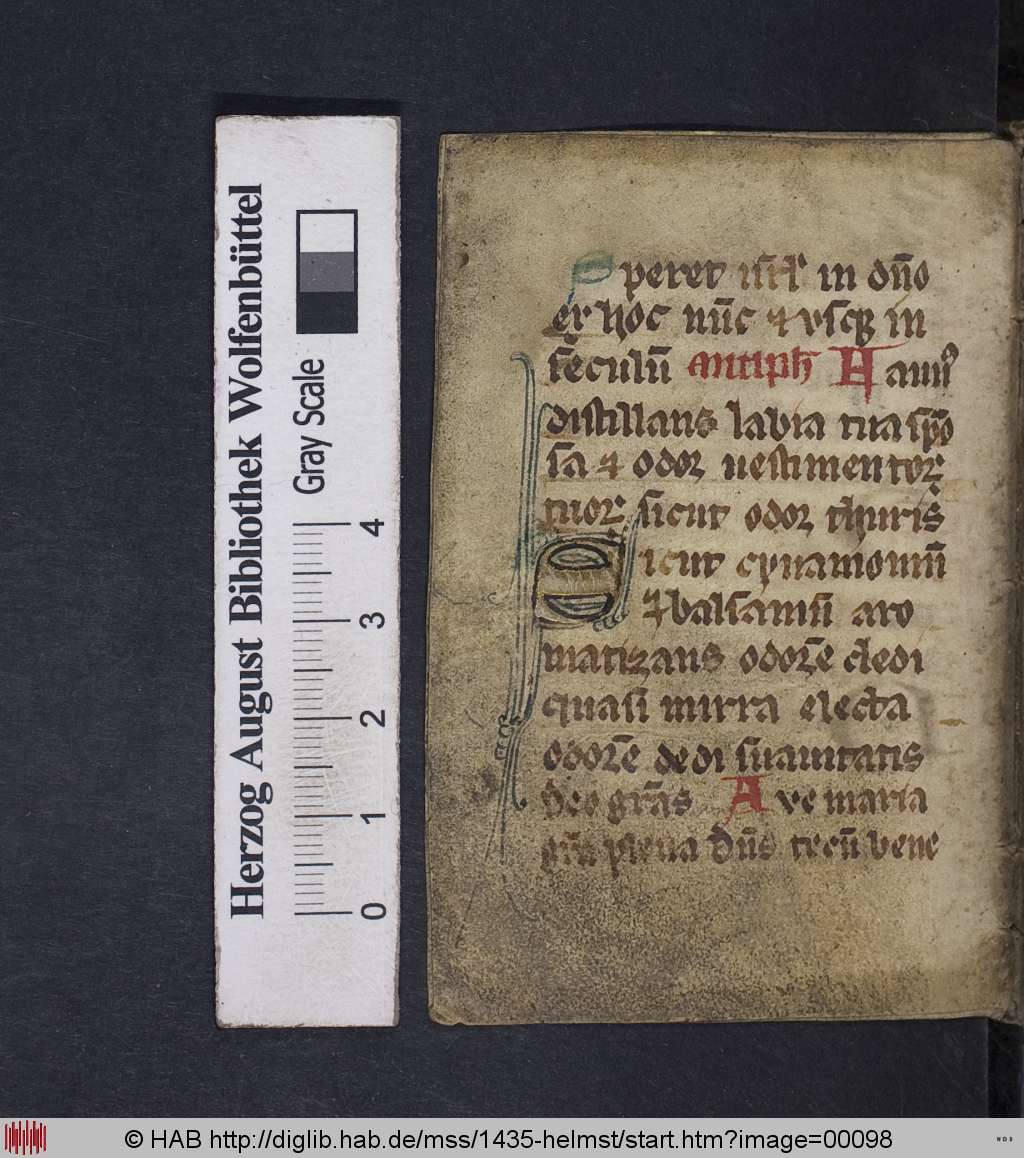 Herzog August Bibliothek Wolfenbüttel
Gray Scale
0 1 2 3 4
Speret isrl in dño
ex hoc nūc ⁊ vsqꝫ in
seculū Antiph Fauus
distillans labia tua spō
sa ⁊ odor uestimentoꝝ
tuoꝝ sicut odor thuris
Sicut cynamomū
⁊ balsamū aro
matizans odorē dedi
quasi mirra electa
odorē dedi suauitatis
deo grās Ave maria
grā plena dūs tecū bene
© HAB http://diglib.hab.de/mss/1435-helmst/start.htm?image=00098